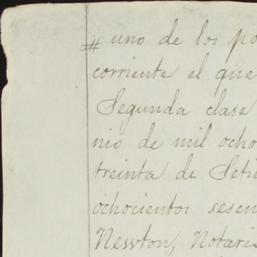 # uno de los po
corriente el que
Segunda clase
nio de mil ocho
treinta de Seti
ochocientos sesen
Newton, Notari